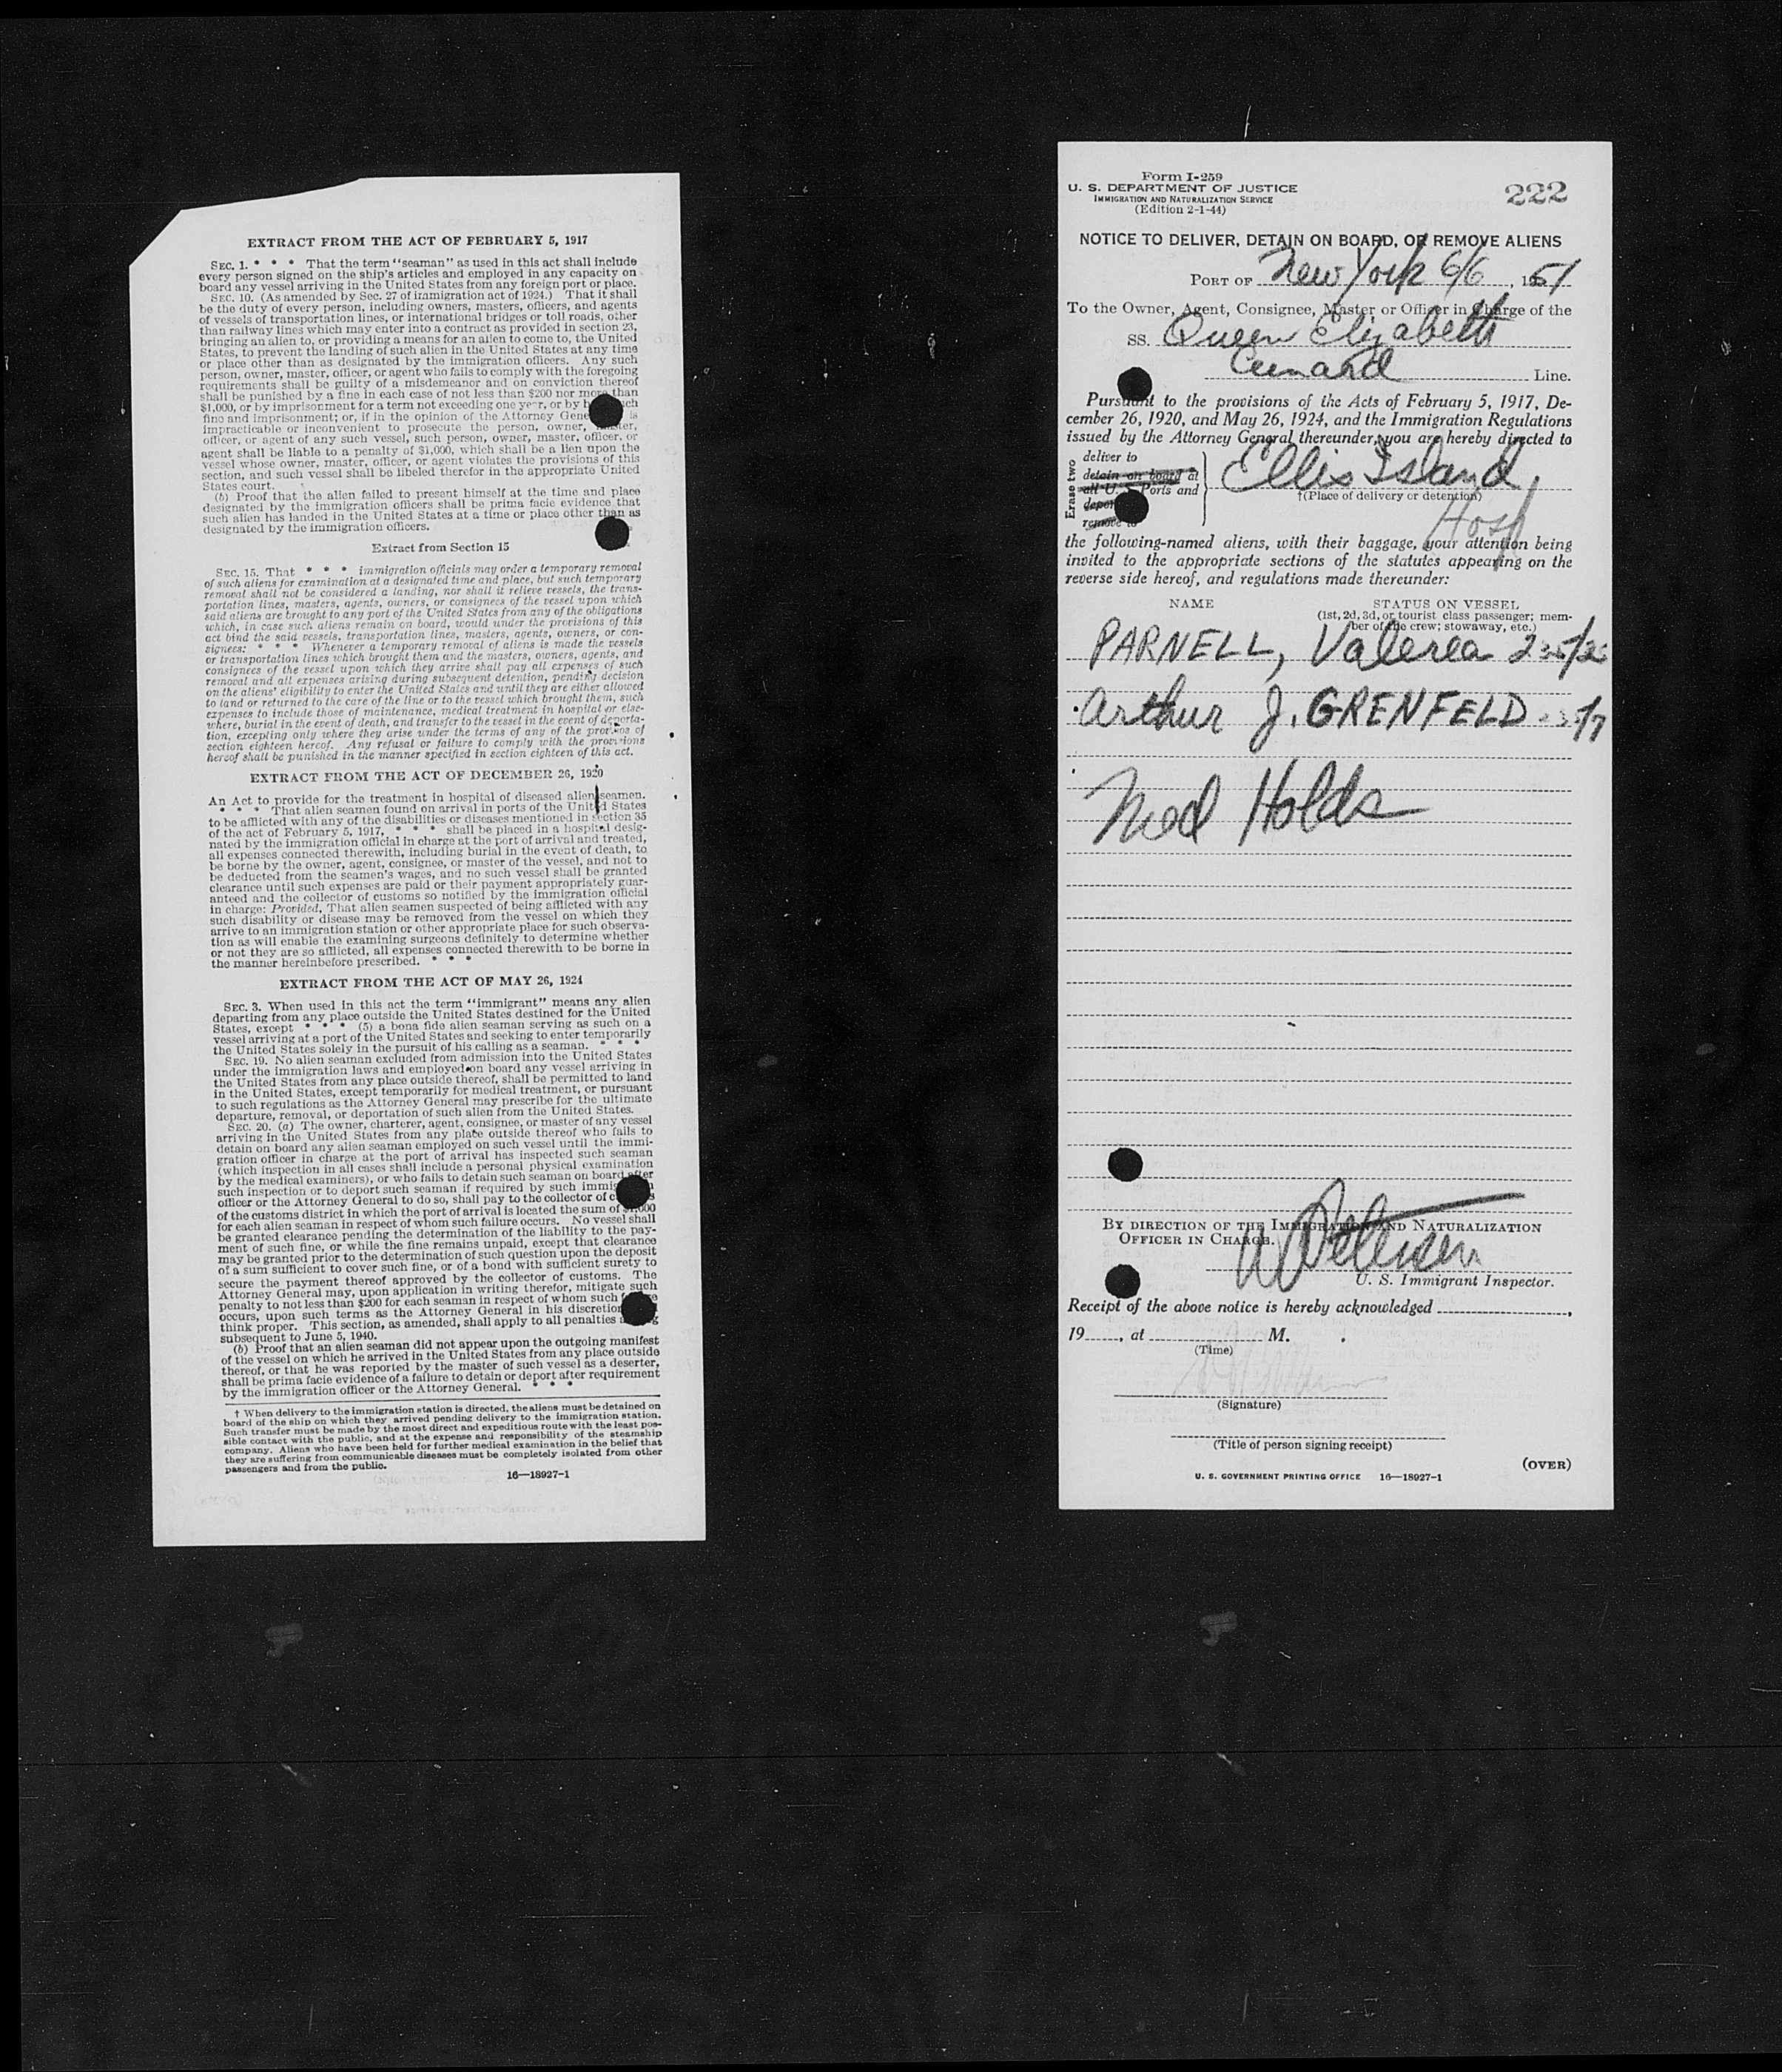 EXTRACT FROM THE ACT OF FEBRUARY 5, 1917
SEC. 1. * * * That the term "seaman" as used in this act shall include
every person signed on the ship's articles and employed in any capacity on
board any vessel arriving in the United States from any foreign port or place.
SEC. 10. (As amended by Sec. 27 of immigration act of 1924.) That it shall
be the duty of every person, including owners, masters, officers, and agents
of vessels of transportation lines, or international bridges or toll roads, other
than railway lines which may enter into a contract as provided in section 23,
bringing an alien to, or providing a means for an alien to come to, the United
States, to prevent the landing of such alien in the United States at any time
or place other than as designated by the immigration officers. Any such
person, owner, master, officer, or agent who fails to comply with the foregoing
requirements shall be guilty of a misdemeanor and on conviction thereof
shall be punished by a fine in each case of not less than $200 nor more than
$1,000, or by imprisonment for a term not exceeding one year, or by b ch
fine and imprisonment; or, if in the opinion of the Attorney Gene is
impracticable or inconvenient to prosecute the person, owner, master,
officer, or agent of any such vessel, such person, owner, master, officer, or
agent shall be liable to a penalty of $1,000, which shall be a lien upon the
vessel whose owner, master, officer, or agent violates the provisions of this
section, and such vessel shall be libeled therefor in the appropriate United
States court.
(b) Proof that the alien failed to present himself at the time and place
designated by the immigration officers shall be prima facie evidence that
such alien has landed in the United States at a time or place other than as
designated by the immigration officers.
Extract from Section 15
SEC. 15. That * * * immigration officials may order a temporary removal
of such aliens for examination at a designated time and place, but such temporary
removal shall not be considered a landing, nor shall it relieve vessels, the trans-
portation lines, masters, agents, owners, or consignees of the vessel upon which
said aliens are brought to any port of the United States from any of the obligations
which, in case such aliens remain on board, would under the provisions of this
act bind the said vessels, transportation lines, masters, agents, owners, or con-
signees: * * * Whenever a temporary removal of aliens is made the vessels
or transportation lines which brought them and the masters, owners, agents, and
consignees of the vessel upon which they arrive shall pay all expenses of such
removal and all expenses arising during subsequent detention, pending decision
on the aliens' eligibility to enter the United States and until they are either allowed
to land or returned to the care of the line or to the vessel which brought them, such
expenses to include those of maintenance, medical treatment in hospital or else-
where, burial in the event of death, and transfer to the vessel in the event of deporta-
tion, excepting only where they arise under the terms of any of the provisos of
section eighteen hereof. Any refusal or failure to comply with the provisions
hereof shall be punished in the manner specified in section eighteen of this act.
EXTRACT FROM THE ACT OF DECEMBER 26, 1920
An Act to provide for the treatment in hospital of diseased alien seamen.
* * * That alien seamen found on arrival in ports of the United States
to be afflicted with any of the disabilities or diseases mentioned in section 35
of the act of February 5, 1917, * * * shall be placed in a hospital desig-
nated by the immigration official in charge at the port of arrival and treated,
all expenses connected therewith, including burial in the event of death, to
be borne by the owner, agent, consignee, or master of the vessel, and not to
be deducted from the seamen's wages, and no such vessel shall be granted
clearance until such expenses are paid or their payment appropriately guar-
anteed and the collector of customs so notified by the immigration official
in charge: Provided, That alien seamen suspected of being afflicted with any
such disability or disease may be removed from the vessel on which they
arrive to an immigration station or other appropriate place for such observa-
tion as will enable the examining surgeons definitely to determine whether
or not they are so afflicted, all expenses connected therewith to be borne in
the manner hereinbefore prescribed. * * *
EXTRACT FROM THE ACT OF MAY 26, 1924
SEC. 3. When used in this act the term "immigrant" means any alien
departing from any place outside the United States destined for the United
States, except * * * (5) a bona fide alien seaman serving as such on a
vessel arriving at a port of the United States and seeking to enter temporarily
the United States solely in the pursuit of his calling as a seaman. * * *
SEC. 19. No alien seaman excluded from admission into the United States
under the immigration laws and employed on board any vessel arriving in
the United States from any place outside thereof, shall be permitted to land
in the United States, except temporarily for medical treatment, or pursuant
to such regulations as the Attorney General may prescribe for the ultimate
departure, removal, or deportation of such alien from the United States.
SEC. 20. (a) The owner, charterer, agent, consignee, or master of any vessel
arriving in the United States from any place outside thereof who fails to
detain on board any alien seaman employed on such vessel until the immi-
gration officer in charge at the port of arrival has inspected such seaman
(which inspection in all cases shall include a personal physical examination
by the medical examiners), or who fails to detain such seaman on board after
such inspection or to deport such seaman if required by such immig
officer or the Attorney General to do so, shall pay to the collector of c
of the customs district in which the port of arrival is located the sum of $1,000
for each alien seaman in respect of whom such failure occurs. No vessel shall
be granted clearance pending the determination of the liability to the pay-
ment of such fine, or while the fine remains unpaid, except that clearance
may be granted prior to the determination of such question upon the deposit
of a sum sufficient to cover such fine, or of a bond with sufficient surety to
secure the payment thereof approved by the collector of customs. The
Attorney General may, upon application in writing therefor, mitigate such
penalty to not less than $200 for each seaman in respect of whom such
occurs, upon such terms as the Attorney General in his discretion
think proper. This section, as amended, shall apply to all penalties
subsequent to June 5, 1940.
(b) Proof that an alien seaman did not appear upon the outgoing manifest
of the vessel on which he arrived in the United States from any place outside
thereof, or that he was reported by the master of such vessel as a deserter,
shall be prima facie evidence of a failure to detain or deport after requirement
by the immigration officer or the Attorney General. * * *
† When delivery to the immigration station is directed, the aliens must be detained on
board of the ship on which they arrived pending delivery to the immigration station.
Such transfer must be made by the most direct and expeditious route with the least pos-
sible contact with the public, and at the expense and responsibility of the steamship
company. Aliens who have been held for further medical examination in the belief that
they are suffering from communicable diseases must be completely isolated from other
passengers and from the public.
16—18927-1
Form I-259
U. S. DEPARTMENT OF JUSTICE
IMMIGRATION AND NATURALIZATION SERVICE
(Edition 2-1-44)
222
NOTICE TO DELIVER, DETAIN ON BOARD, OR REMOVE ALIENS
PORT OF New York 6/6, 1951
To the Owner, Agent, Consignee, Master or Officer in Charge of the
SS. Queen Elizabeth
Cunard Line.
Pursuant to the provisions of the Acts of February 5, 1917, De-
cember 26, 1920, and May 26, 1924, and the Immigration Regulations
issued by the Attorney General thereunder, you are hereby directed to
Erase two
deliver to
detain on board at
all U. S. Ports and
depor
remove to
Ellis Island,
†(Place of delivery or detention)
Hosp
the following-named aliens, with their baggage, your attention being
invited to the appropriate sections of the statutes appearing on the
reverse side hereof, and regulations made thereunder:
NAME STATUS ON VESSEL
(1st, 2d, 3d, or tourist class passenger; mem-
ber of the crew; stowaway, etc.)
PARNELL, Valerea
Arthur J. GRENFELD
Med Holds
BY DIRECTION OF THE IMMIGRATION AND NATURALIZATION
OFFICER IN CHARGE.
U. S. Immigrant Inspector.
Receipt of the above notice is hereby acknowledged
19 , at M.
(Time)
(Signature)
(Title of person signing receipt)
(OVER)
U. S. GOVERNMENT PRINTING OFFICE 16—18927-1